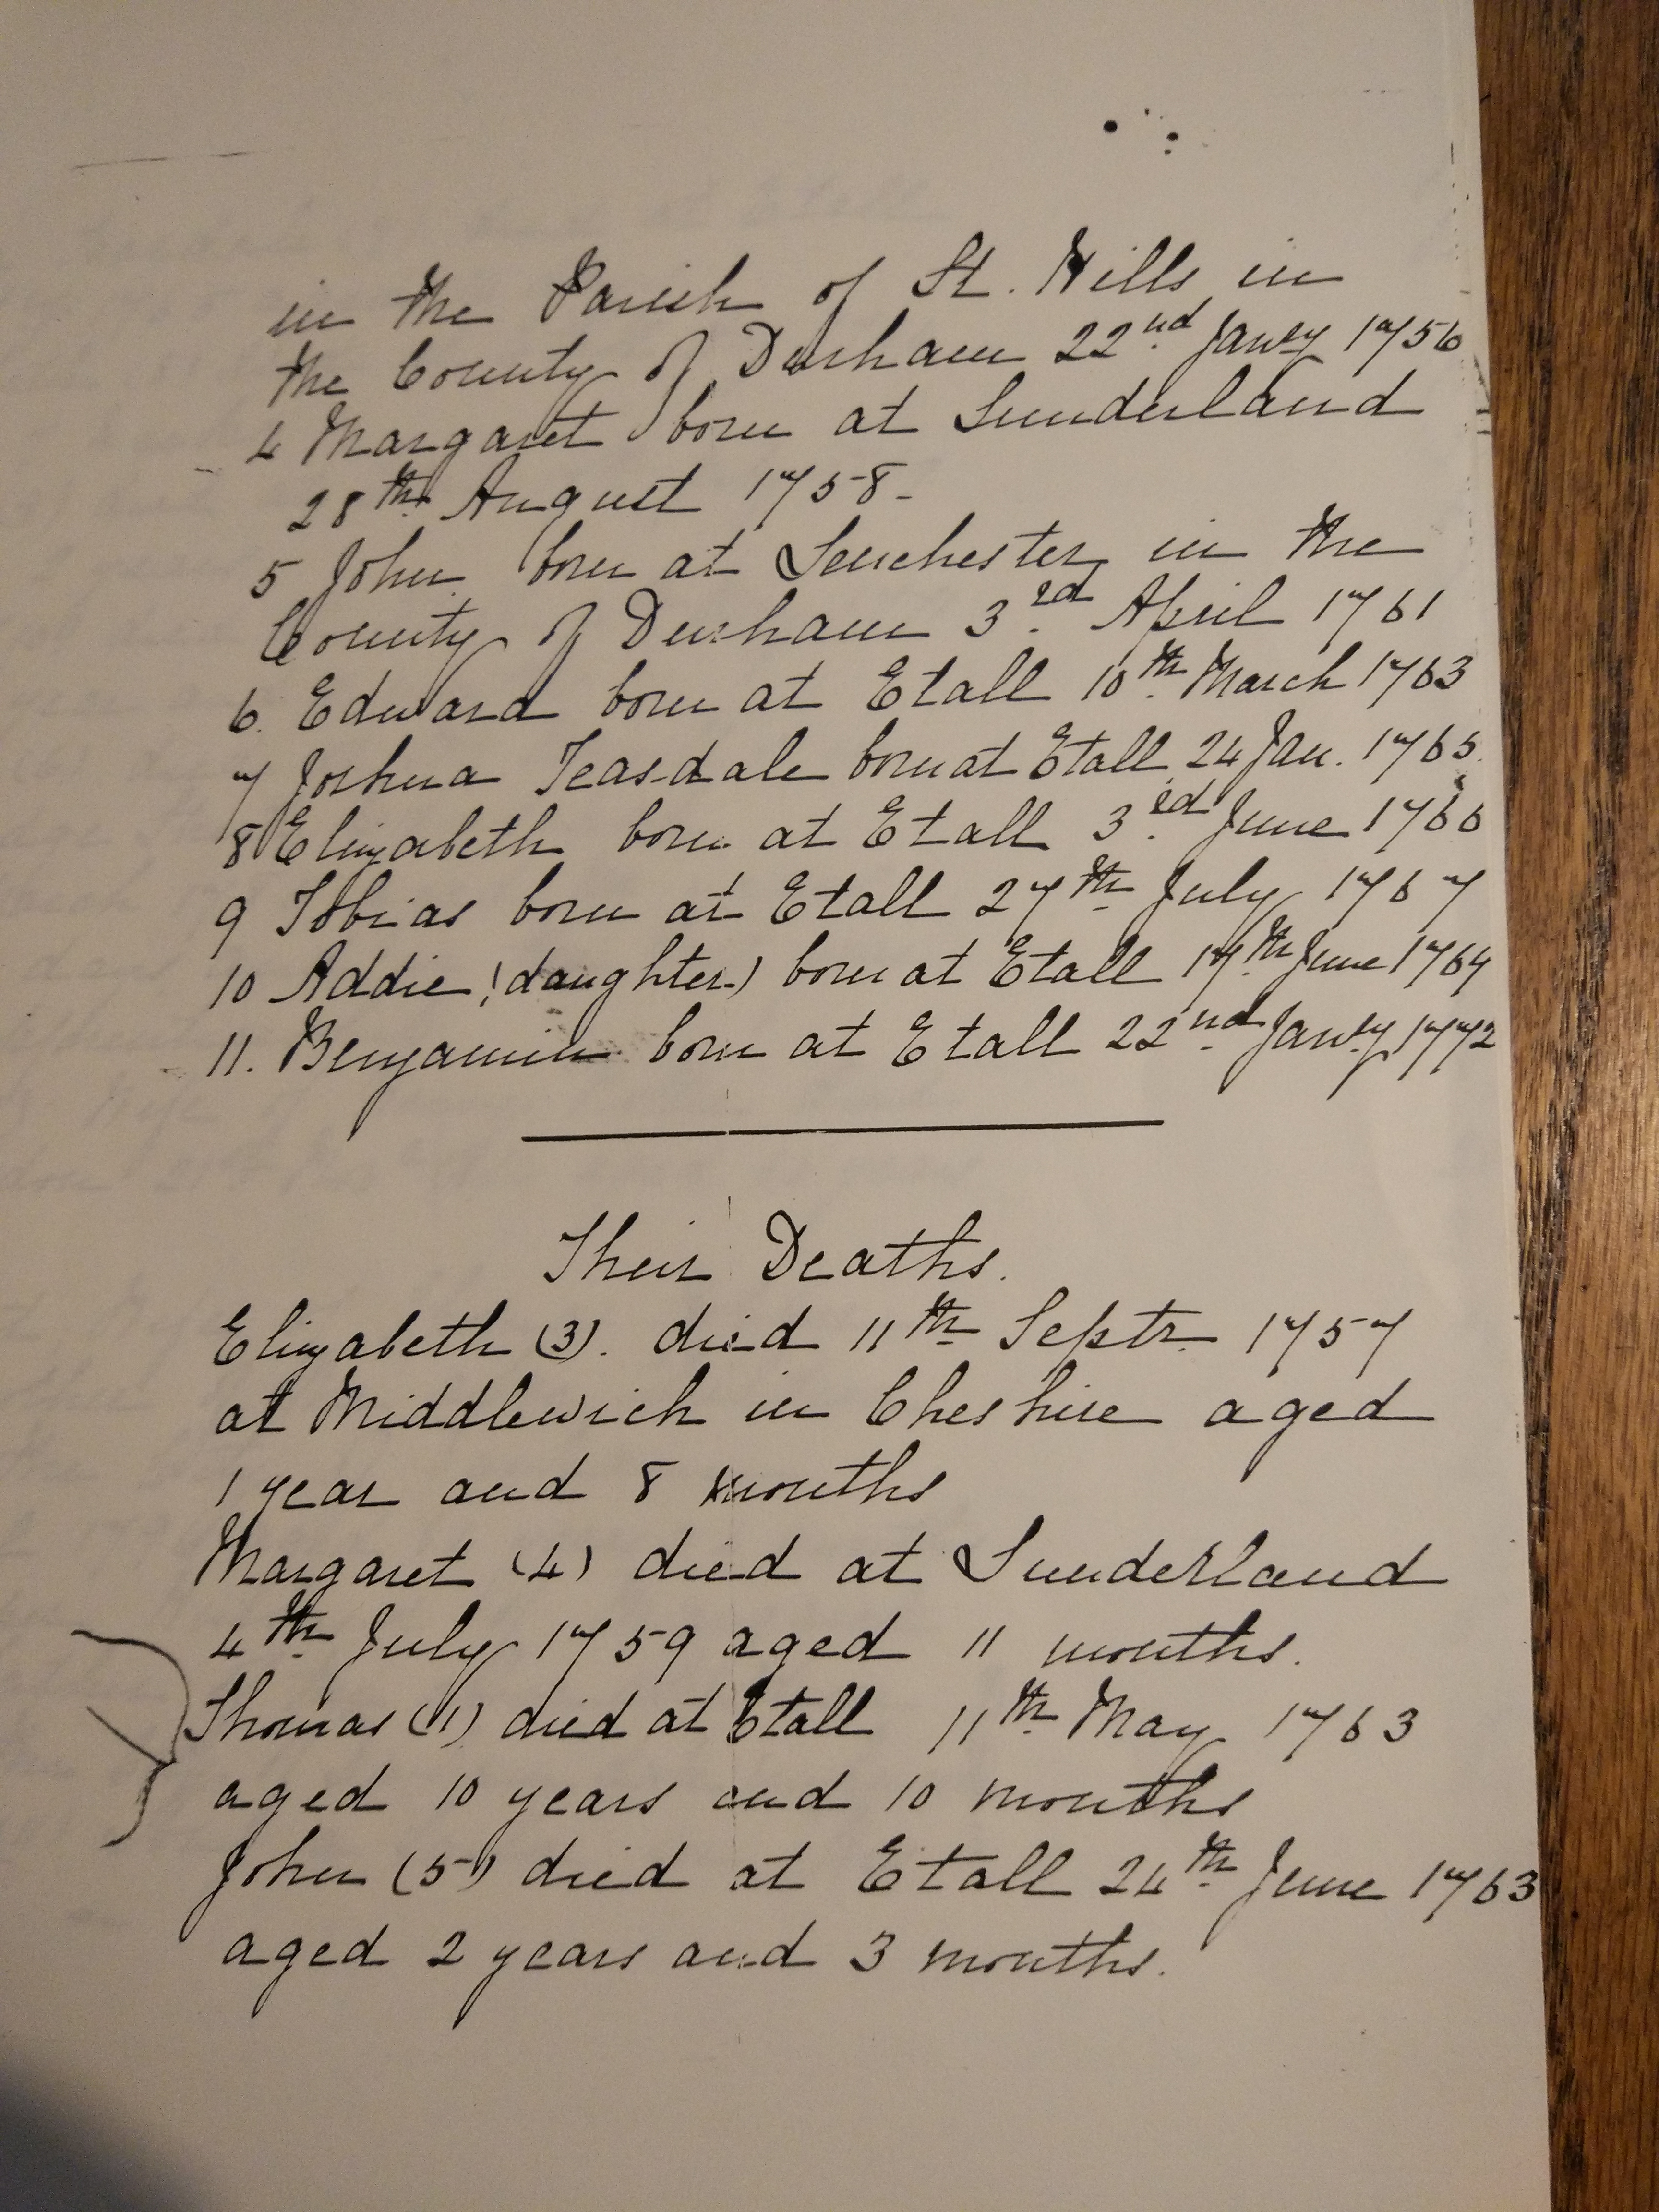 in the Parish of St. Hills in
the County of Durham 22nd. Jany 1756
4 Margaret born at Sunderland
28th August 1758-
5 John born at Lenchester in the
County of Durham 3rd. April 1761
6. Edward born at Etall 10th. March 1763
7 Joshua Teasdale born at Etall 24 Jan. 1765.
8 Elizabeth born at Etall 3rd. June 1766
9 Tobias born at Etall 27th July 1767
10 Addie (daughter) born at Etall 17th June 1769
11. Benjamin born at Etall 22nd. Jany 1772
Their Deaths.
Elizabeth (3). died 11th Septr. 1757
at Middlewich in Cheshire aged
1 year and 8 months
Margaret (4) died at Sunderland
4th. July 1759 aged 11 months.
Thomas (1) died at Etall 11th. May 1763
aged 10 years and 10 months
John (5) died at Etall 24th. June 1763
aged 2 years and 3 months.